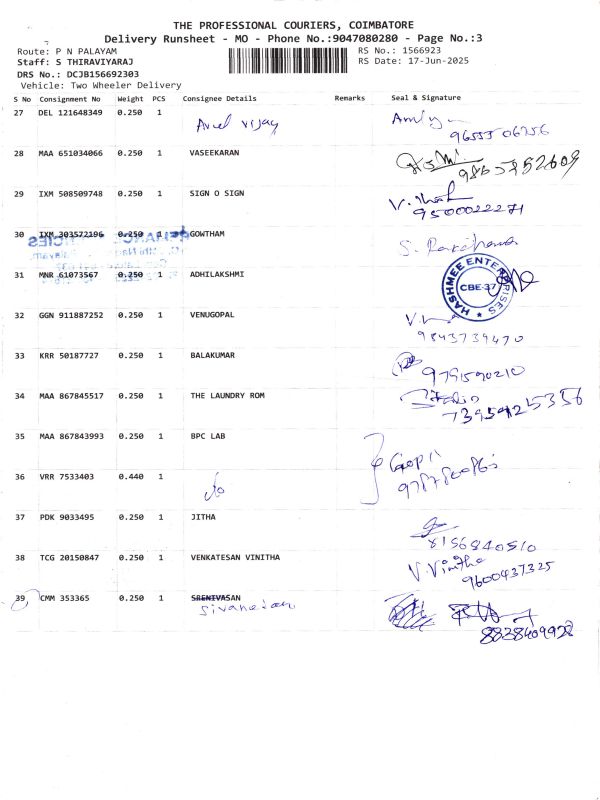 THE PROFESSIONAL COURIERS, COIMBATORE
Delivery Runsheet - MO - Phone No.:9047080280 - Page No.:3
Route: P N PALAYAM
Staff: S THIRAVIYARAJ
DRS No.: DCJB156692303
Vehicle: Two Wheeler Delivery
RS No.: 1566923
RS Date: 17-Jun-2025
S No Consignment No Weight PCS Consignee Details Remarks Seal & Signature
27 DEL 121648349 0.250 1 Arul vijay
28 MAA 651034066 0.250 1 VASEEKARAN
29 IXM 508509748 0.250 1 SIGN O SIGN
9500022271
30 IXM 303572196 0.250 1 GOWTHAM
31 MNR 61073567 0.250 1 ADHILAKSHMI HASHMEE ENTERPRISES CBE-37
32 GGN 911887252 0.250 1 VENUGOPAL
9843739470
33 KRR 50187727 0.250 1 BALAKUMAR
9791590210
34 MAA 867845517 0.250 1 THE LAUNDRY ROM
35 MAA 867843993 0.250 1 BPC LAB
36 VRR 7533403 0.440 1 do
37 PDK 9033495 0.250 1 JITHA
8156840510
38 TCG 20150847 0.250 1 VENKATESAN VINITHA V. Vinitha
9600437325
39 CMM 353365 0.250 1 SRENIVASAN
Sivanesan
8838409928